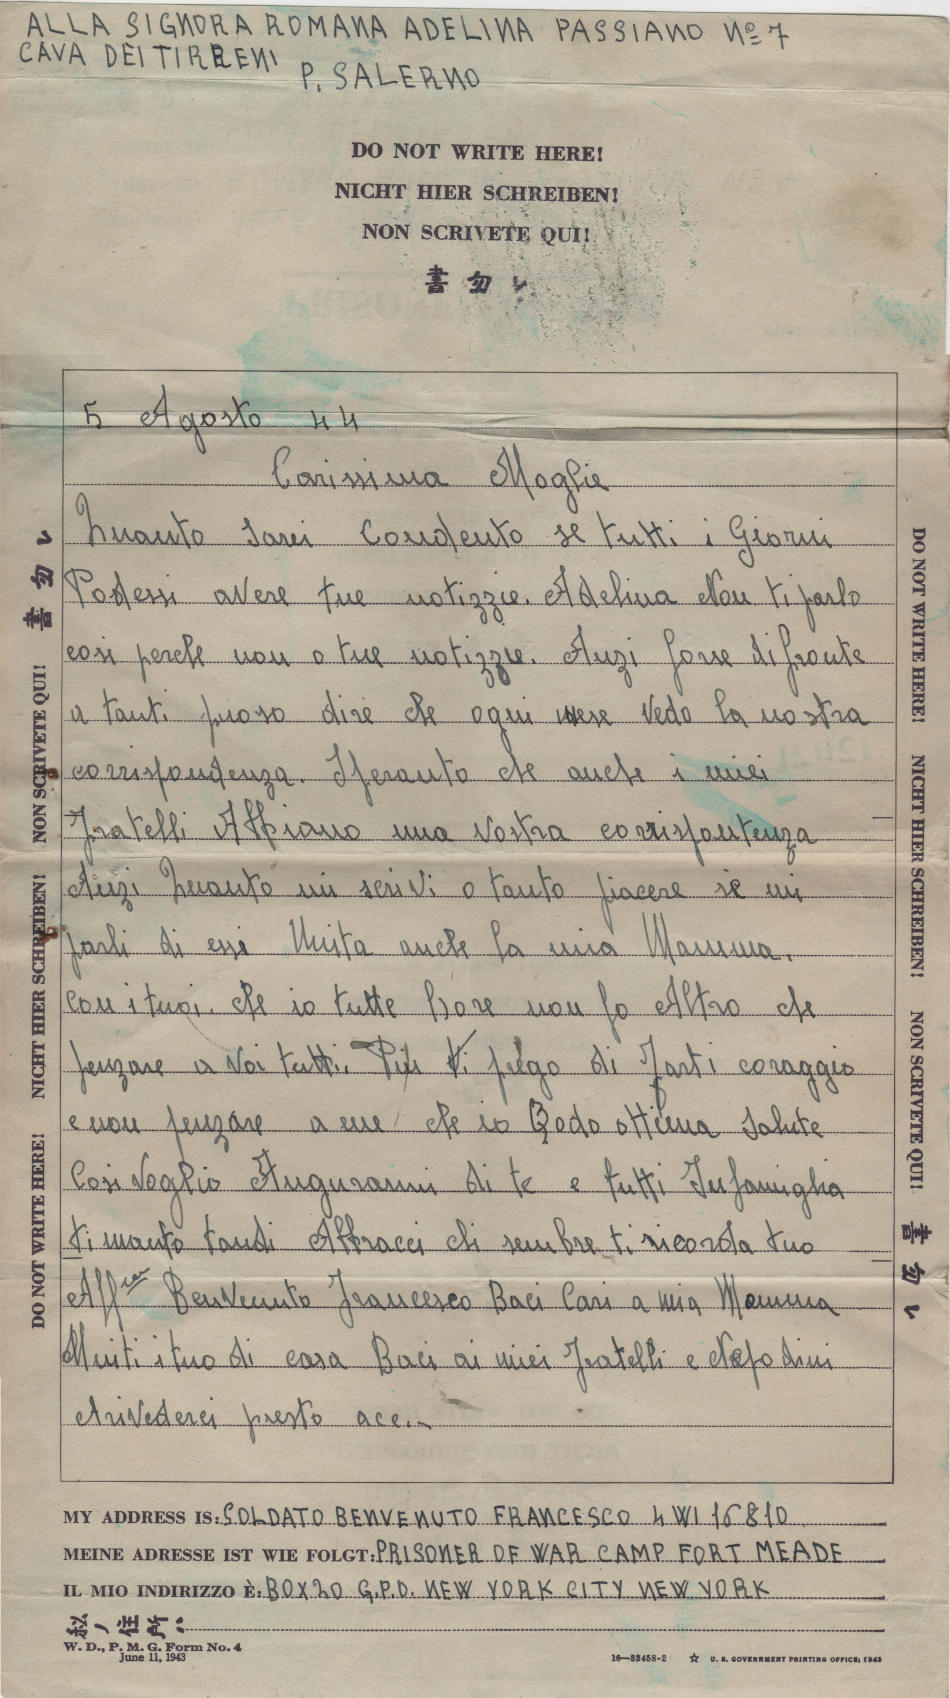 ALLA SIGNORA ROMANA ADELINA PASSIANO Nº 7
CAVA DEI TIRRENI
P. SALERNO
DO NOT WRITE HERE!
NICHT HIER SCHREIBEN!
NON SCRIVETE QUI!
書勿レ
5 Agosto 44
Carissima Moglie
Quanto sarei Condento se tutti i Giorni
Podessi avere tue notizzie. Adelina Non ti parlo
cosi perche non o tue notizzie. Anzi forse difronte
a tanti puoso dire che ogni mese vedo la nostra
corrispondenza. Speranto che anche i miei
Fratelli Abbiano una vostra corrispontenza
Anzi Quanto mi scrivi o tanto piacere se mi
parli di essi Unita anche la mia Mamma.
con i tuoi. che io tutte hore non fo Altro che
penzare a voi tutti. Più ti prego di Farti coraggio
e non penzare a me che io Godo ottima salute
Cosi Voglio Auguranni di te e tutti Infamiglia
ti manto tandi Abbracci chi sembre ti ricorda tuo
Aff Benvenuto Francesco Baci Cari a mia Mamma
Uniti i tuo di casa Baci ai miei Fratelli e Nepodini
Arivederci presto ace..
DO NOT WRITE HERE! NICHT HIER SCHREIBEN! NON SCRIVETE QUI! 書勿レ
DO NOT WRITE HERE! NICHT HIER SCHREIBEN! NON SCRIVETE QUI! 書勿レ
MY ADDRESS IS: SOLDATO BENVENUTO FRANCESCO 4 WI 16810
MEINE ADRESSE IST WIE FOLGT: PRISONER OF WAR CAMP FORT MEADE
IL MIO INDIRIZZO È: BOX 20 G.P.O. NEW YORK CITY NEW YORK
私ノ住所:
W. D., P. M. G. Form No. 4
June 11, 1943
16—33458-2 ☆ U. S. GOVERNMENT PRINTING OFFICE: 1943